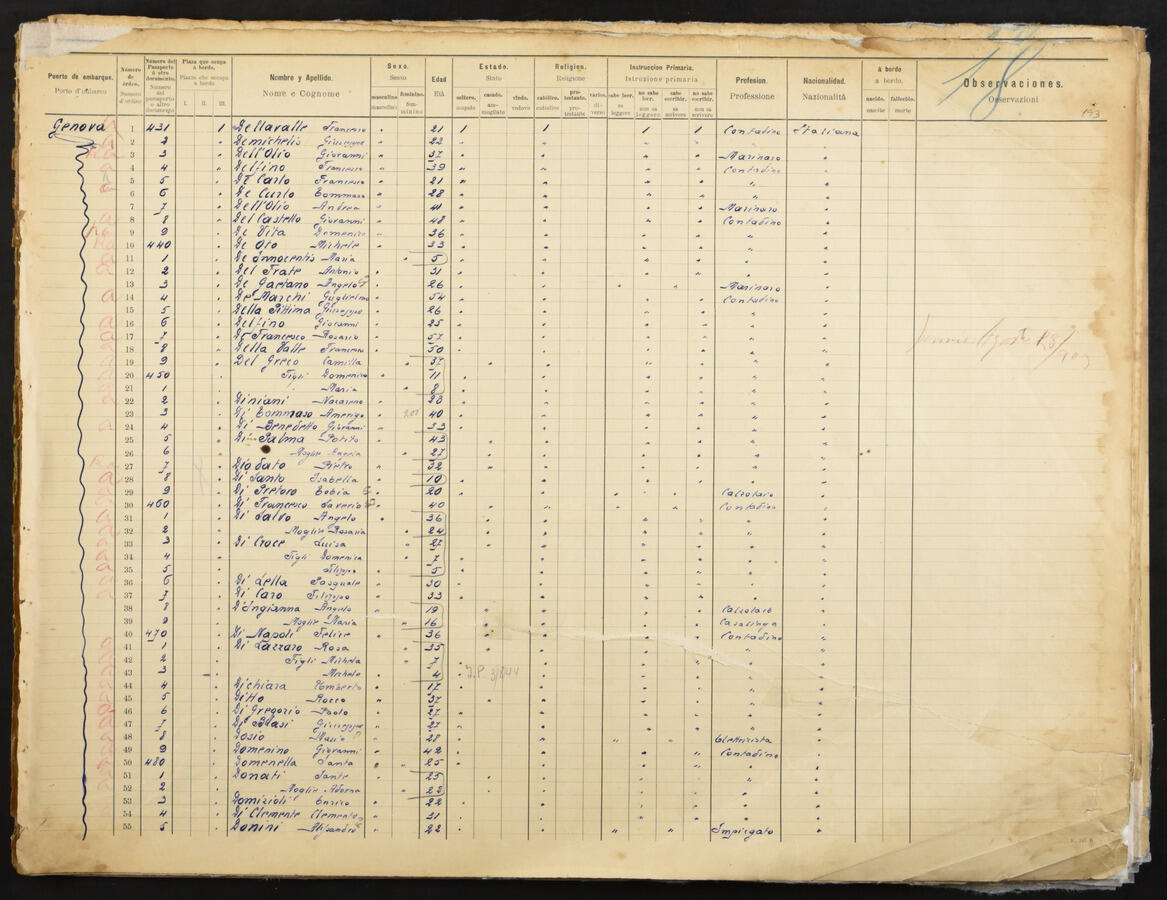 Puerto de embarque. Porto d'imbarco
Número de órden. Numero d'ordine
Número del Pasaporte ó otro documento. Numero del passaporto o altro documento
Plaza que ocupa á bordo. Piazza che occupa a bordo I. II. III.
Nombre y Apellido. Nome e Cognome
Sexo. Sesso masculino maschile femenino. femminino
Edad Età
Estado. Stato soltero. casado. ammogliato viudo. vedovo
Religion. Religione católico. cattolico protestante. protestante varios. diverso
Instruccion Primaria. Istruzione primaria sabe leer. leggere no sabe leer. non sa leggere sabe escribir. sa scrivere no sabe escribir. non sa scrivere
Profesion. Professione
Nacionalidad. Nazionalità
á bordo a bordo. nacido. nascite fallecido. morte
Observaciones. Osservazioni
193
Genova 1 431 1 Dellavalle Francesco 21 1 1 1 1 Contadino Italiana
2 2 Demichelis Giuseppe 22
3 3 Dell'Olio Giovanni 37 Marinaro
4 4 Delfino Francesco 39 Contadino
5 5 De Carlo Francesco 21
6 6 De Carlo Tommaso 28
7 7 Dell'Olio Andrea 41 Marinaro
8 8 Del Castello Giovanni 48 Contadino
9 9 De Vita Domenico 36
10 440 De Oto Michele 33
11 1 De Innocentis Maria 5
12 2 Del Frate Antonio 31
13 3 De Gaetano Angelo 26 Marinaro
14 4 De Marchi Guglielmo 54 Contadino
15 5 Della Pittima Giuseppe 26
16 6 Delfino Giovanni 25
17 7 De Francesco Rosario 57
18 8 Della Valle Francesco 50
19 9 Del Greco Camilla 37
20 450 Figli Domenico 11
21 1 Maria 8
22 2 Diniani Nazareno 23
23 3 Di Tommaso Amerigo 40
24 4 Di Benedetto Giovanni 33
25 5 Di Palma Potito 43
26 6 Moglie 27
27 7 Diodato Pietro 32
28 8 Di Santo Isabella 10
29 9 Di Pretoro Tobia 20 Calzolaio
30 460 Di Francesco Saverio 40 Contadino
31 1 Di Salvo Angelo 36
32 2 Moglie Rosaria 24
33 3 Di Croce Luisa 27
34 4 Figli Domenica 7
35 5 Filippo 5
36 6 Di Lella Pasquale 30
37 7 Di Caro Filippo 33
38 8 D'Ingianna Angelo 19 Calzolaio
39 9 Moglie Maria 16 Casalinga
40 470 Di Napoli Felice 36 Contadino
41 1 Di Lazzaro Rosa 35
42 2 Figli Michela 7
43 3 Michele 4
44 4 Dichiara Umberto 17
45 5 Ditto Rocco 37
46 6 Di Gregorio Paolo 27
47 7 Di Biasi Giuseppe 27
48 8 Dosio Mario 28 Elettricista
49 9 Domenino Giovanni 42 Contadino
50 480 Domenella Santa 25
51 1 Donati Sante 25
52 2 Moglie 22
53 3 Domizioli Enrico 22
54 4 Di Clemente Clemente 31
55 5 Donini Alessandro 22 Impiegato